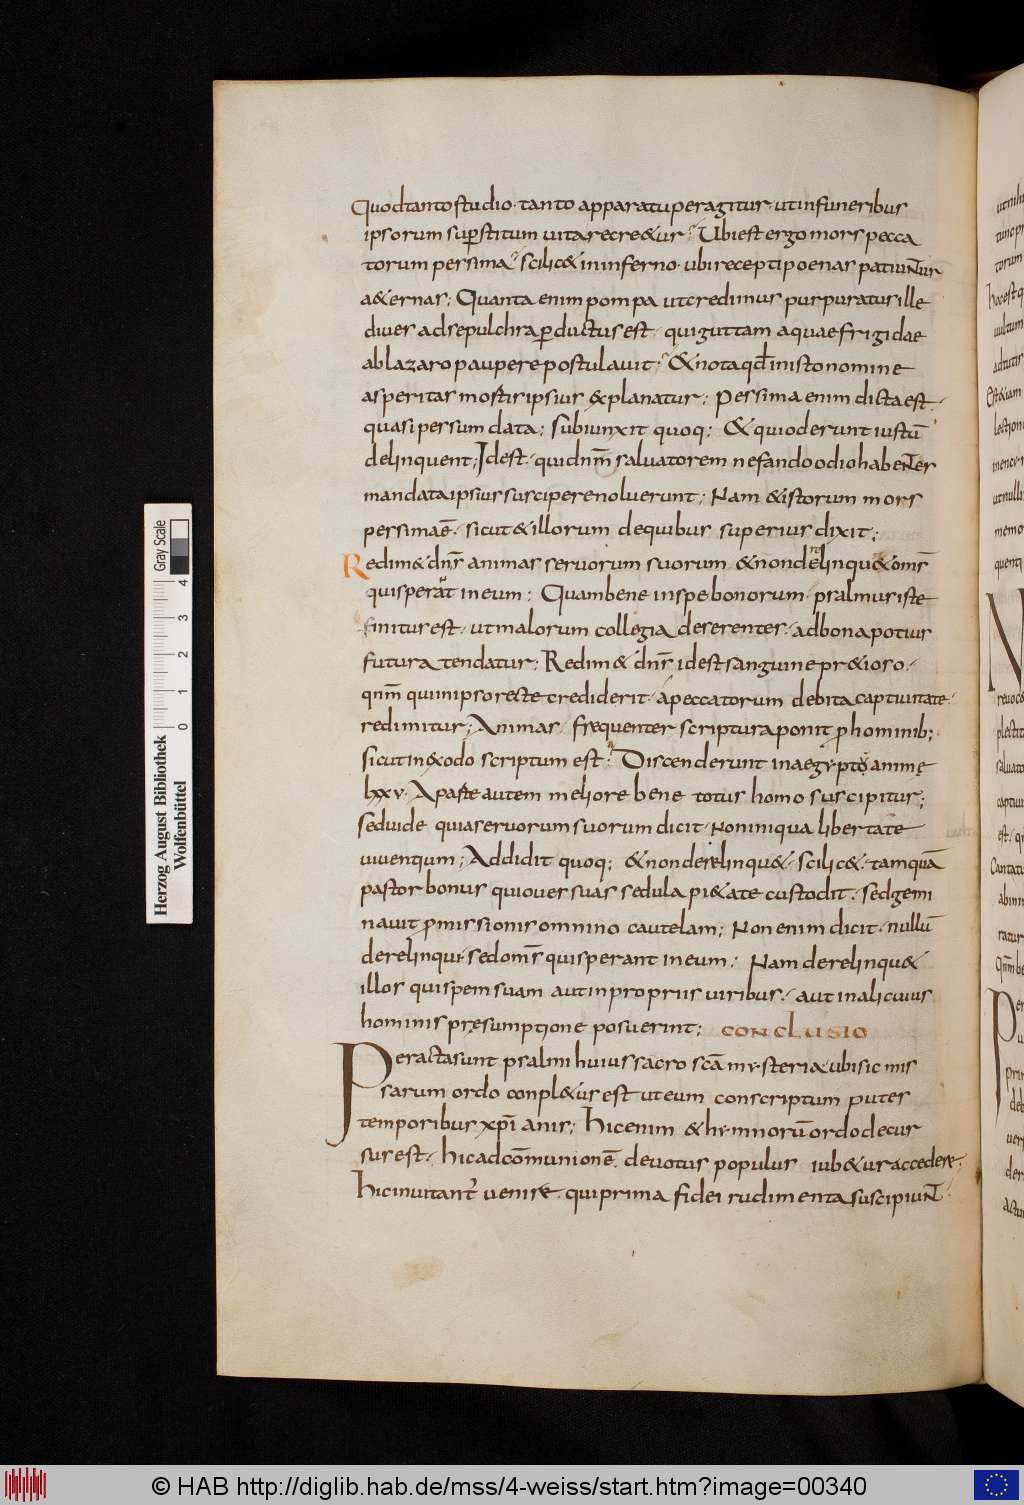 Quodtantostudio· tanto apparatuperagitur· utinfuneribus
ipsorum suꝑstitum uitarecre&ur· Ubiest ergo mors pecca
torum pessima· scilic& ininferno· ubi recepti poenas patiuntur
a&ernas; Quanta enim pompa utcredimus purpuratus ille
diues adsepulchra ꝑductus est· qui guttam aquae frigidae
ablazaro paupere postulauit· & nota qđ inisto nomine
asperitas mostis ipsius explanatur; Pessima enim dicta est·
quasi pessum data; subiunxit quoq; & qui oderunt iustū
delinquent; Idest· qui dnm̄ saluatorem nefando odio habentes
mandata ipsius suscipere noluerunt; Nam & istorum mors
pessima ē· sicut & illorum dequibus superius dixit;
Redim& dn̄s animas seruorum suorum & non derelinqu& om̄s
qui sperāt in eum; Quam bene inspe bonorum· psalmus iste
finitus est· ut malorum collegia deserentes· adbona potius
futura tendatur; Redim& dn̄s idest sanguine pr&ioso·
qnm̄ qui inipso recte crediderit· apeccatorum debita captiuitate·
redimitur; Animas frequenter scriptura ponit ꝓ hominib;
sicut in&xodo scriptum est· Discenderunt inaegypto animę
lxxv· Aparte autem meliore bene totus homo suscipitur;
sed uide quia seruorum suorum dicit· Non iniqua libertate
uiuentium; Addidit quoq; & non derelinqu&· scilic&· tamquā
pastor bonus qui oues suas sedula pi&ate custodit· sed gemi
nauit ꝓmissionis omnino cautelam; Non enim dicit· nullū
derelinqui· sed om̄s qui sperant in eum; Nam derelinqu&
illos qui spem suam aut in propriis uiribus· aut in alicuius
hominis pręsumptione posuerint; CONCLUSIO
Peracta sunt psalmi huius sacrosc̄a mysteria· ubi sic mis
sarum ordo conpl&us est ut eum conscriptum putes
temporibus xp̄ianis; Hic enim & hymnorū ordo decur
sus est· hic ad cōmunionē deuotus populus iub&ur accedere·
Hic inuitant᷒ uenire· qui prima fidei rudimenta suscipiunt·
Herzog August Bibliothek
Wolfenbüttel
0 1 2 3 4
Gray Scale
© HAB http://diglib.hab.de/mss/4-weiss/start.htm?image=00340